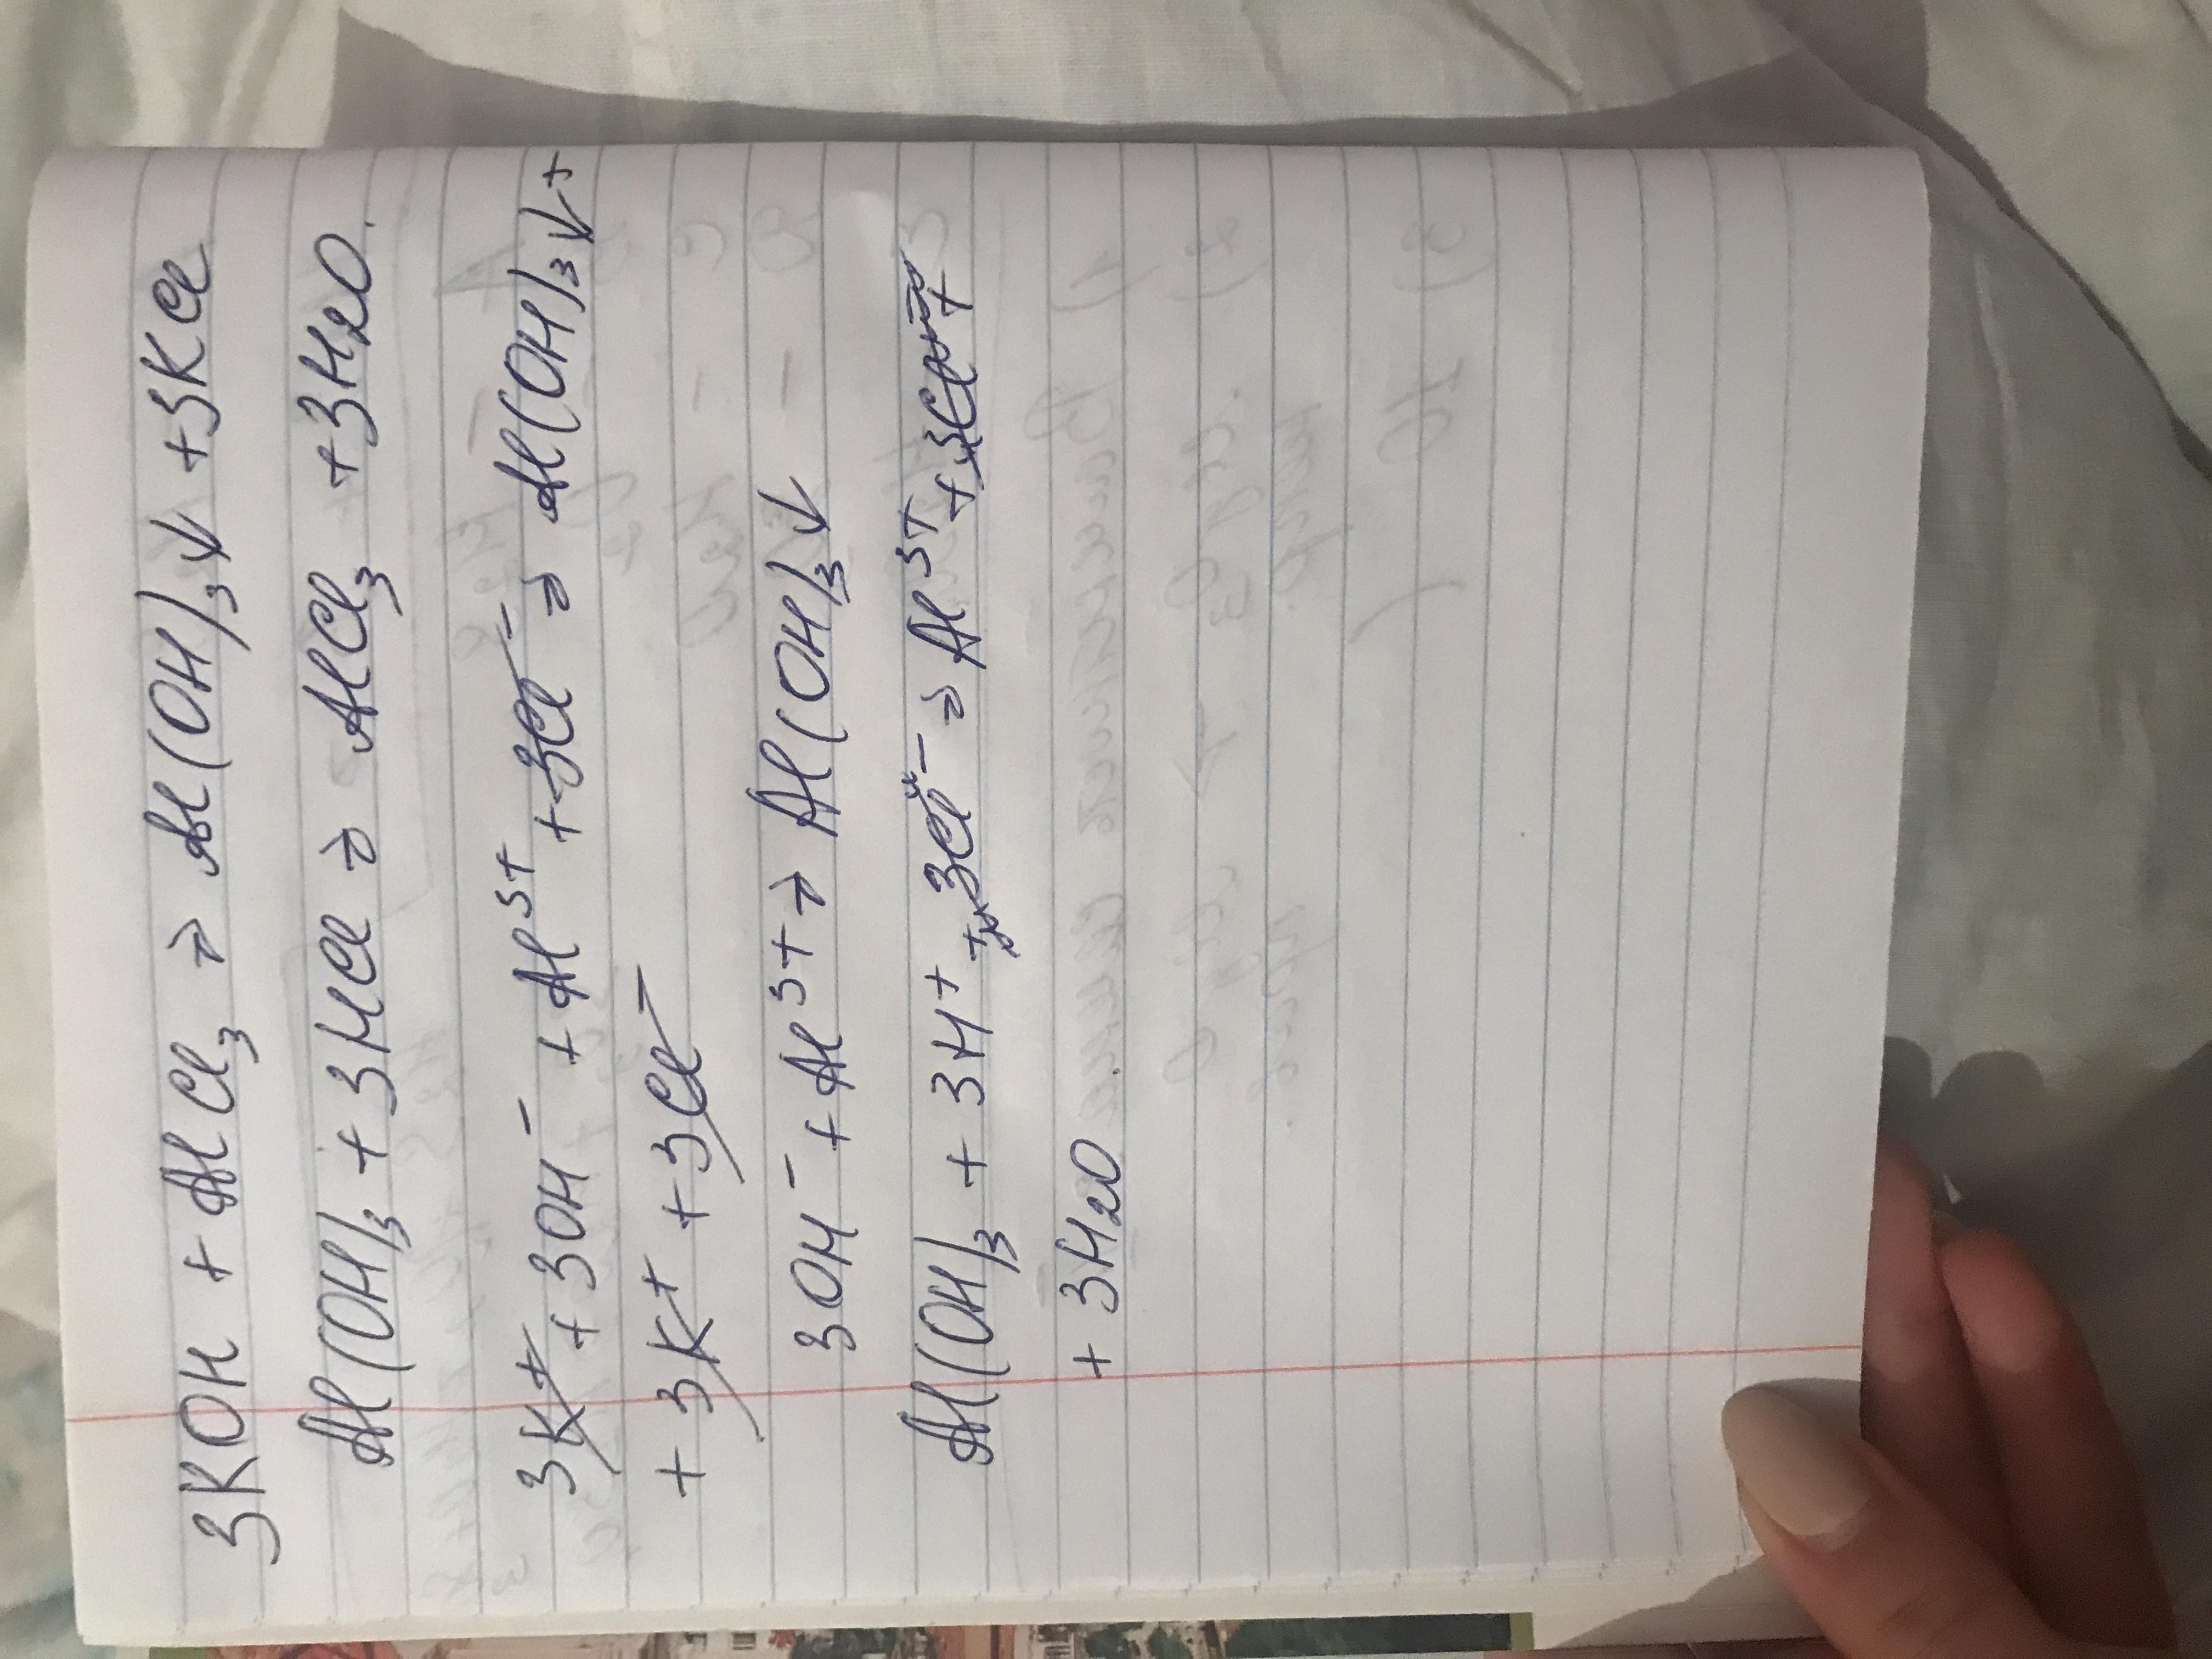 3KOH + AlCl₃ → Al(OH)₃↓ + 3KCl
Al(OH)₃ + 3HCl → AlCl₃ + 3H₂O.
3K⁺ + 3OH⁻ + Al³⁺ + 3Cl⁻ → Al(OH)₃↓ +
+ 3K⁺ + 3Cl⁻
3OH⁻ + Al³⁺ → Al(OH)₃↓
Al(OH)₃ + 3H⁺ + 3Cl⁻ → Al³⁺ + 3Cl⁻ +
+ 3H₂O